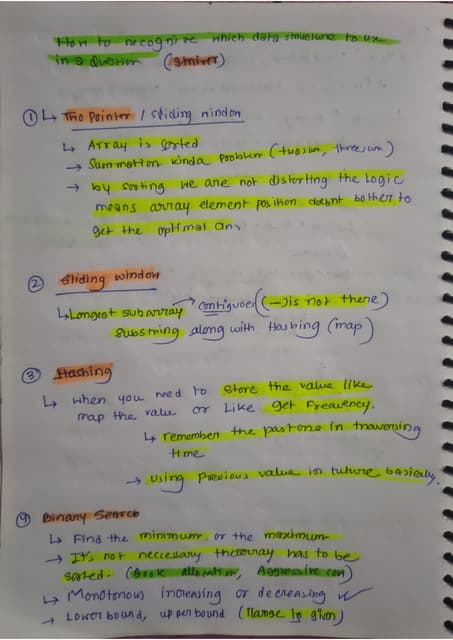 How to recognize which data structure to use
in a question (striver)
① ↳ Two pointer / sliding window
↳ Array is sorted
→ Summation kinda problem (twosum, threesum)
→ by sorting we are not distorting the logic
means array element position doesnt bother to
get the optimal ans
② Sliding window
↳ Longest subarray → contiguous ((-) is not there)
substring along with Hashing (map)
③ Hashing
↳ when you need to store the value like
map the value or like get frequency.
↳ remember the past one in traversing
time
→ using previous value in future basically.
④ Binary Search
↳ Find the minimum or the maximum
→ It's not neccessary the array has to be
sorted. (Book allocation, Aggressive cow)
↳ Monotonous increasing or decreasing ✓
→ Lower bound, upper bound (Range is given)